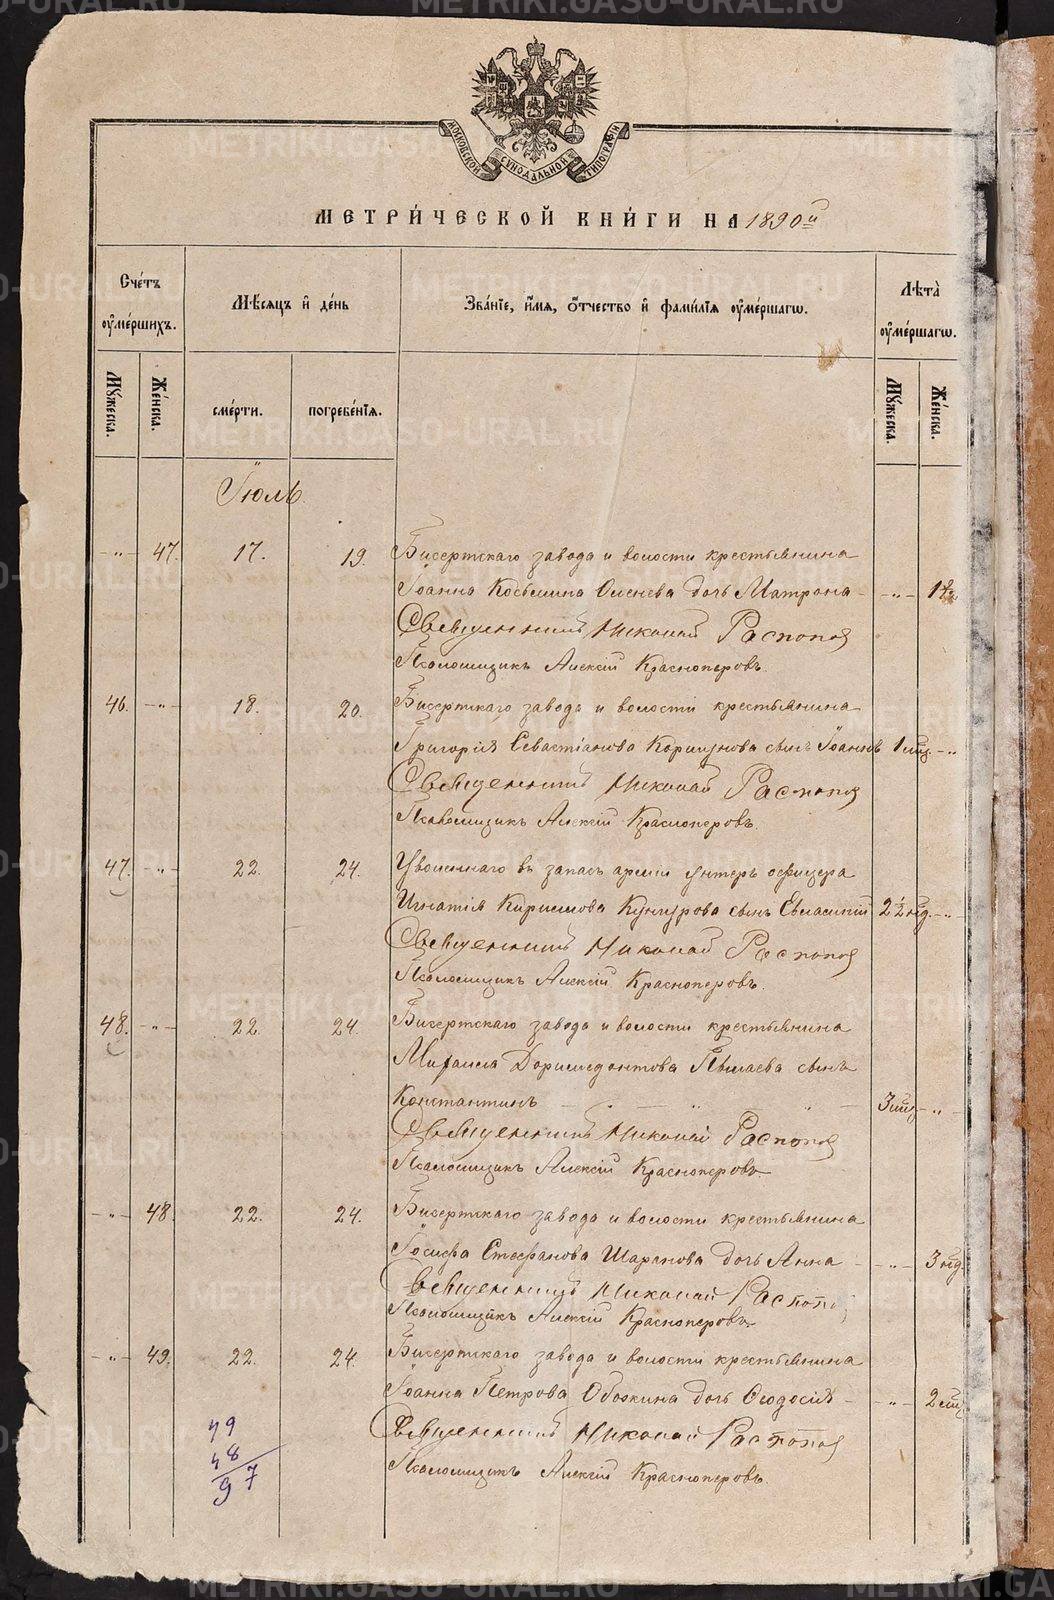 МОСКОВСКОЙ СѴНОДАЛЬНОЙ ТИПОГРАФІИ
МЕТРИ́ЧЕСКОЙ КНИ́ГИ НА 1890й
Сче́тъ оумершихъ.
Мѣсѧцъ и҆ де́нь
Зва́нїе, и҆́мѧ, ѻ҆́тчество и҆ фами́лїѧ оумершагѡ.
Лѣта̀ оумершагѡ.
Мꙋжеска.
Же́нска.
сме́рти.
погребе́нїѧ.
Мꙋжеска.
Же́нска.
Іюль.
-"- 47. 17. 19. Бисертскаго завода и волости крестьянина
Іоанна Косьмина Оленева дочь Матрона -"-
Священникъ Николай Распопов
Псаломщикъ Алексій Красноперовъ.
46. -"- 18. 20. Бисертскаго завода и волости крестьянина
Григорія Севастіанова Коршунова сынъ Іоаннъ 1 мц. -"-
Священникъ Николай Распопов
Псаломщикъ Алексій Красноперовъ.
47. -"- 22. 24. Уволеннаго въ запасъ арміи унтеръ офицера
Игнатія Кириллова Кунгурова сынъ Евласипій 2½ нд. -"-
Священникъ Николай Распопов
Псаломщикъ Алексій Красноперовъ.
48. -"- 22. 24. Бисертскаго завода и волости крестьянина
Михаила Доримедонтова сынъ
Константинъ 3 мц. -"-
Священникъ Николай Распопов
Псаломщикъ Алексій Красноперовъ
-"- 48. 22. 24. Бисертскаго завода и волости крестьянина
Іосифа Стефанова Шарапова дочь Анна -"- 3 нд.
Священникъ Николай Распопов
Псаломщикъ Алексій Красноперовъ.
-"- 49. 22. 24. Бисертскаго завода и волости крестьянина
Іоанна Петрова Обожина дочь Ѳеодосія -"- 2 мц.
Священникъ Николай Распопов
Псаломщикъ Алексій Красноперовъ.
49
48
97
METRIKI.GASU-URAL.RU